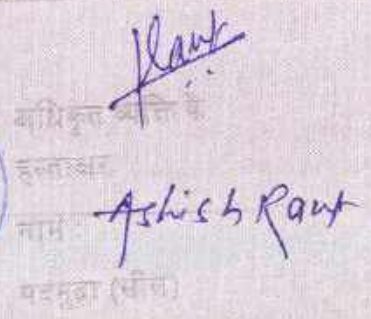 अधिकृत व्यक्ति के
हस्ताक्षर
नाम : Ashish Raut
पदमुद्रा (सील)